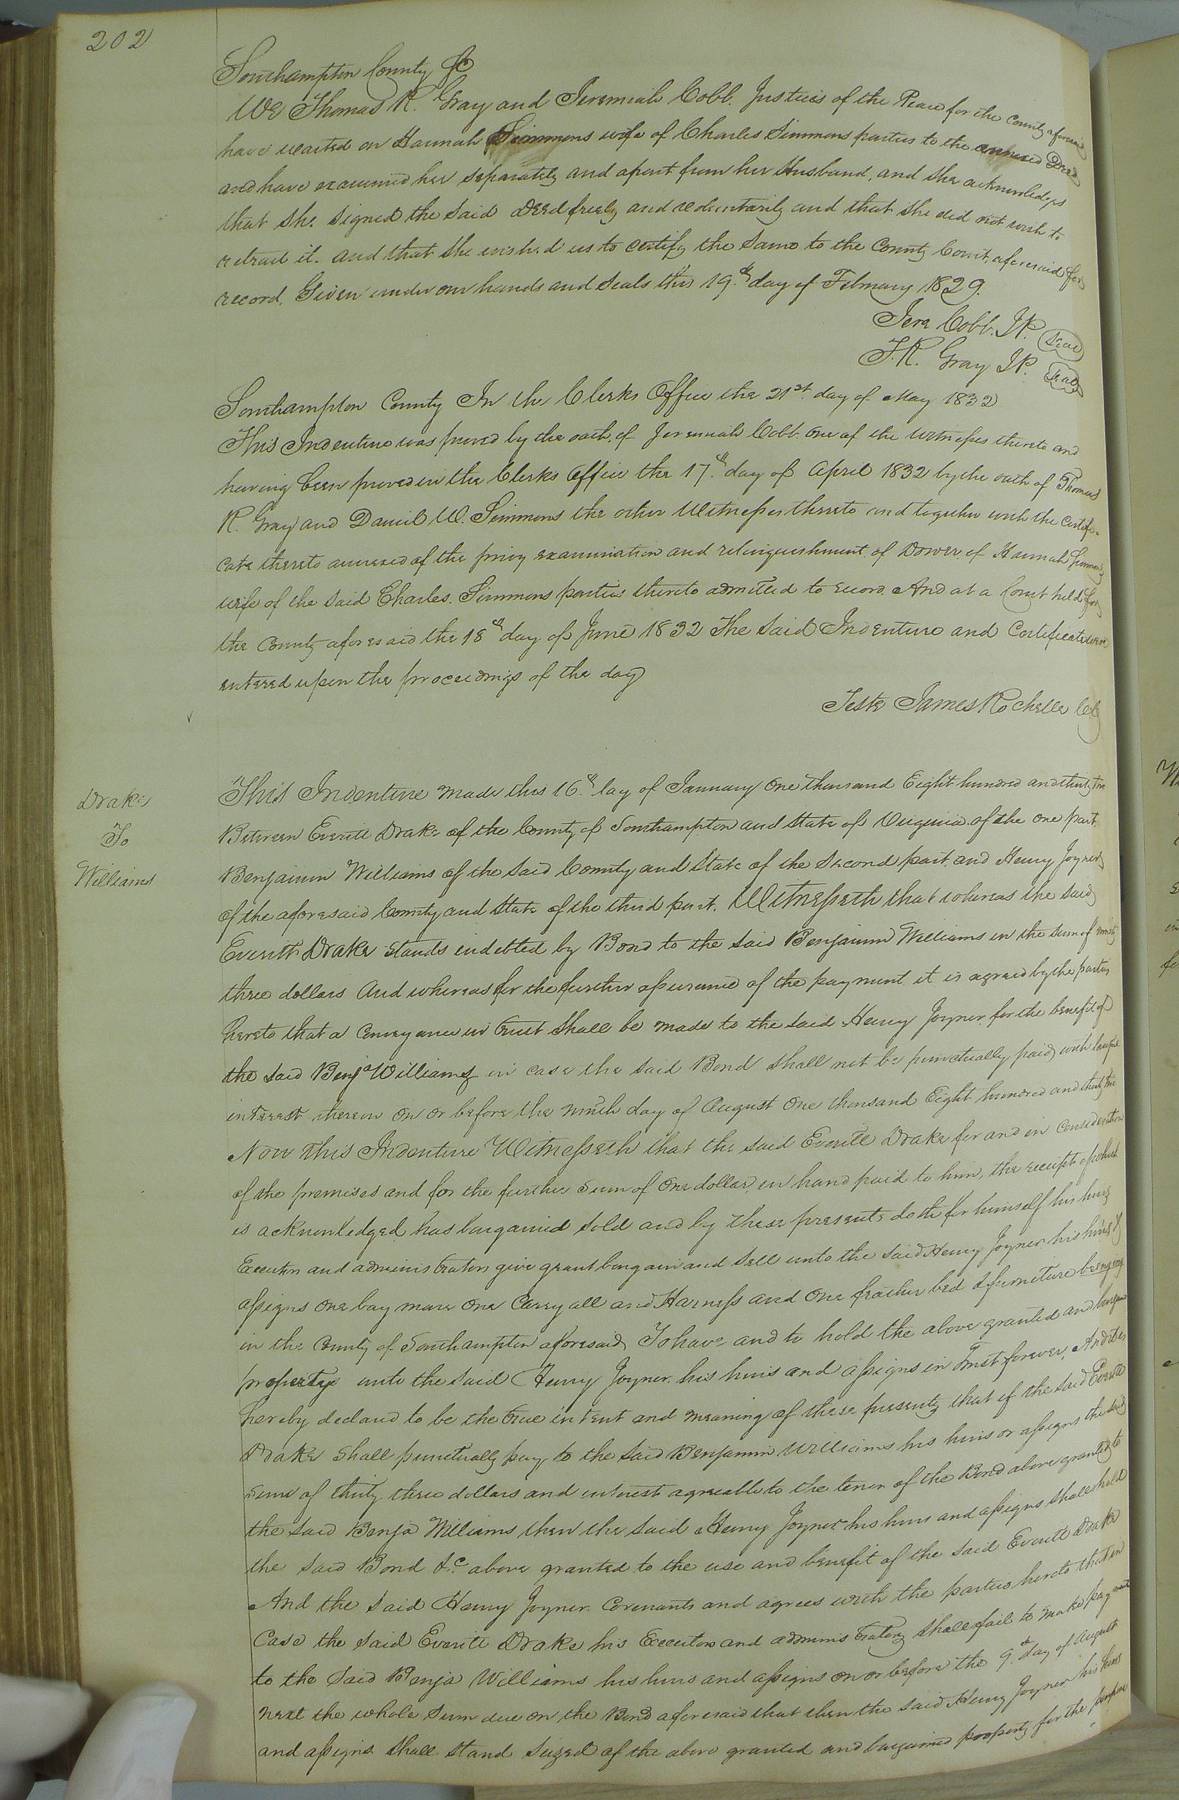 202
Southampton County Sc
We Thomas R. Gray and Jeremiah Cobb. Justices of the Peace for the County aforesaid
have waited on Hannah Simmons wife of Charles Simmons parties to the annexed Deed
and have examined her separately and apart from her Husband, and she acknowledges
that she signed the said Deed freely and voluntarily and that she did not wish to
retract it. and that she wished us to certify the same to the County Court aforesaid for
record. Given under our hands and seals this 19th day of February 1829.
Jere Cobb. J.P. Seal
T.R. Gray J.P. Seal
Southampton County In the Clerks Office the 21st day of May 1832
This Indenture was proved by the oath of Jeremiah Cobb one of the Witnesses thereto and
having been proved in the Clerks Office the 17th day of April 1832 by the oath of Thomas
R Gray and Daniel W. Simmons the other Witnesses thereto and together with the certifi-
cate thereto annexed of the privy examination and relinquishment of Dower of Hannah Simmons
wife of the said Charles Simmons parties thereto admitted to record And at a Court held for
the County aforesaid the 18th day of June 1832 The said Indenture and Certificate were
entered upon the proceedings of the day
Teste James Rochelle
Drake
To
Williams
This Indenture made this 16th day of January One thousand Eight hundred and thirty two
Between Everitt Drake of the County of Southampton and State of Virginia of the one part
Benjamin Williams of the said County and State of the second part and Henry Joyner
of the aforesaid County and State of the third part. Witnesseth that whereas the said
Everitt Drake stands indebted by Bond to the said Benjamin Williams in the sum of
three dollars And whereas for the further assurance of the payment it is agreed by the parties
hereto that a conveyance in trust shall be made to the said Henry Joyner for the benefit of
the said Benja Williams in case the said Bond shall not be punctually paid with
interest thereon on or before the ninth day of August One thousand Eight hundred and thirty two
Now This Indenture Witnesseth that the said Everitt Drake for and in consideration
of the premises and for the further sum of One dollar in hand paid to him, the receipt of which
is acknowledged has bargained sold and by these presents doth for himself his heirs
Executors and administrators give grant bargain and sell unto the said Henry Joyner his heirs &
assigns one bay mare one Carry all and Harness and One feather bed & furniture
in the County of Southampton aforesaid To have and to hold the above granted and
property unto the said Henry Joyner his heirs and assigns in trust forever, And it is
hereby declared to be the true intent and meaning of these presents that if the said Everitt
Drake shall punctually pay to the said Benjamin Williams his heirs or assigns the said
sum of thirty three dollars and interest agreeable to the tenor of the Bond above granted to
the said Benja Williams then the said Henry Joyner his heirs and assigns shall hold
the said Bond &c above granted to the use and benefit of the said Everitt Drake
And the said Henry Joyner Covenants and agrees with the parties hereto that in
Case the said Everitt Drake his Executors and administrators shall fail to make payment
to the said Benja Williams his heirs and assigns on or before the 9th day of August
next the whole sum due on the Bond aforesaid that then the said Henry Joyner his heirs
and assigns shall stand seized of the above granted and bargained property for the purpose